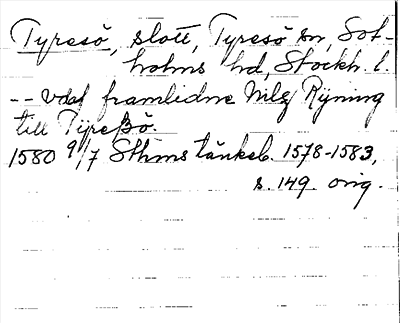 Tyresö, slott, Tyresö sn, Sot-
holms hd, Stockh. l.
-- vdaf framlidne Nilz Ryning
till Tÿreßö.
1580 9/7 Sthms tänkeb. 1578-1583,
s. 149. orig.